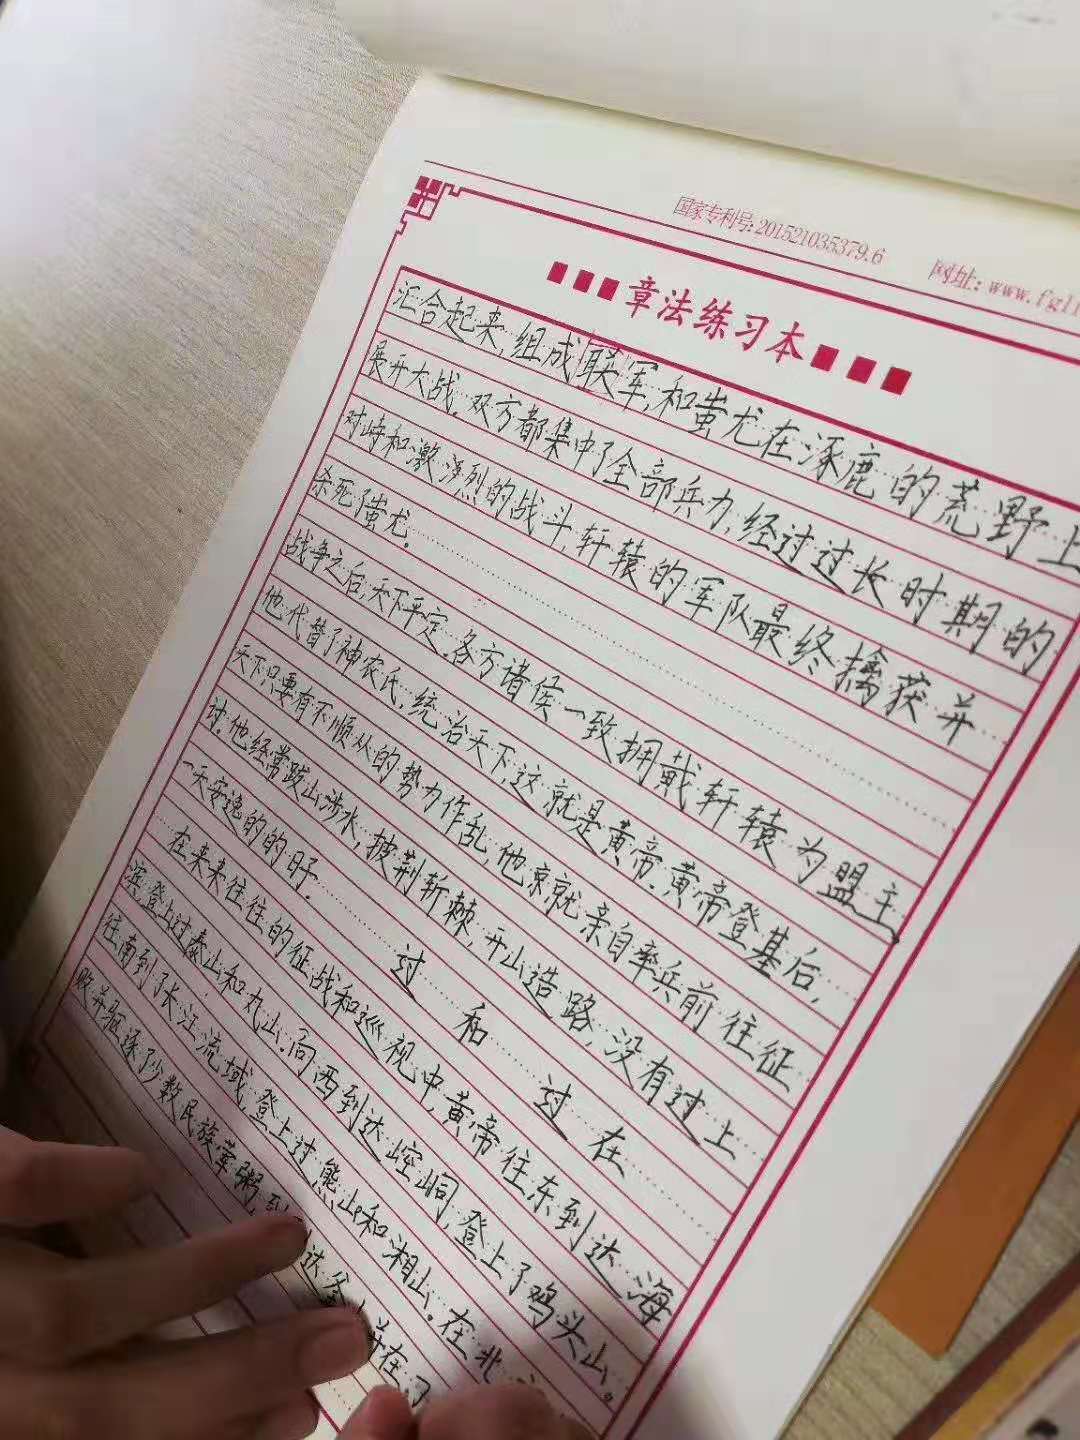 国家专利号:201521035379.6 网址: www.fgl
章法练习本
汇合起来,组成联军,和蚩尤在涿鹿的荒野上
展开大战。双方都集中了全部兵力,经过过长时期的
对峙和激烈的战斗,轩辕的军队最终擒获并
杀死了蚩尤。
战争之后,天下平定。各方诸侯一致拥戴轩辕为盟主,
他代替了神农氏,统治天下,这就是黄帝。黄帝登基后,
天下只要有不顺从的势力作乱,他就亲自率兵前往征
讨。他经常跋山涉水,披荆斩棘,开山造路,没有过上
一天安逸的的日子。
过 和 过 在
在来来往往的征战和巡视中,黄帝往东到达海
滨,登上过泰山和丸山。向西到达崆峒,登上了鸡头山。
往南到了长江流域,登上过熊山和湘山。在北
败并驱逐了少数民族荤粥,到 达釜 并在了